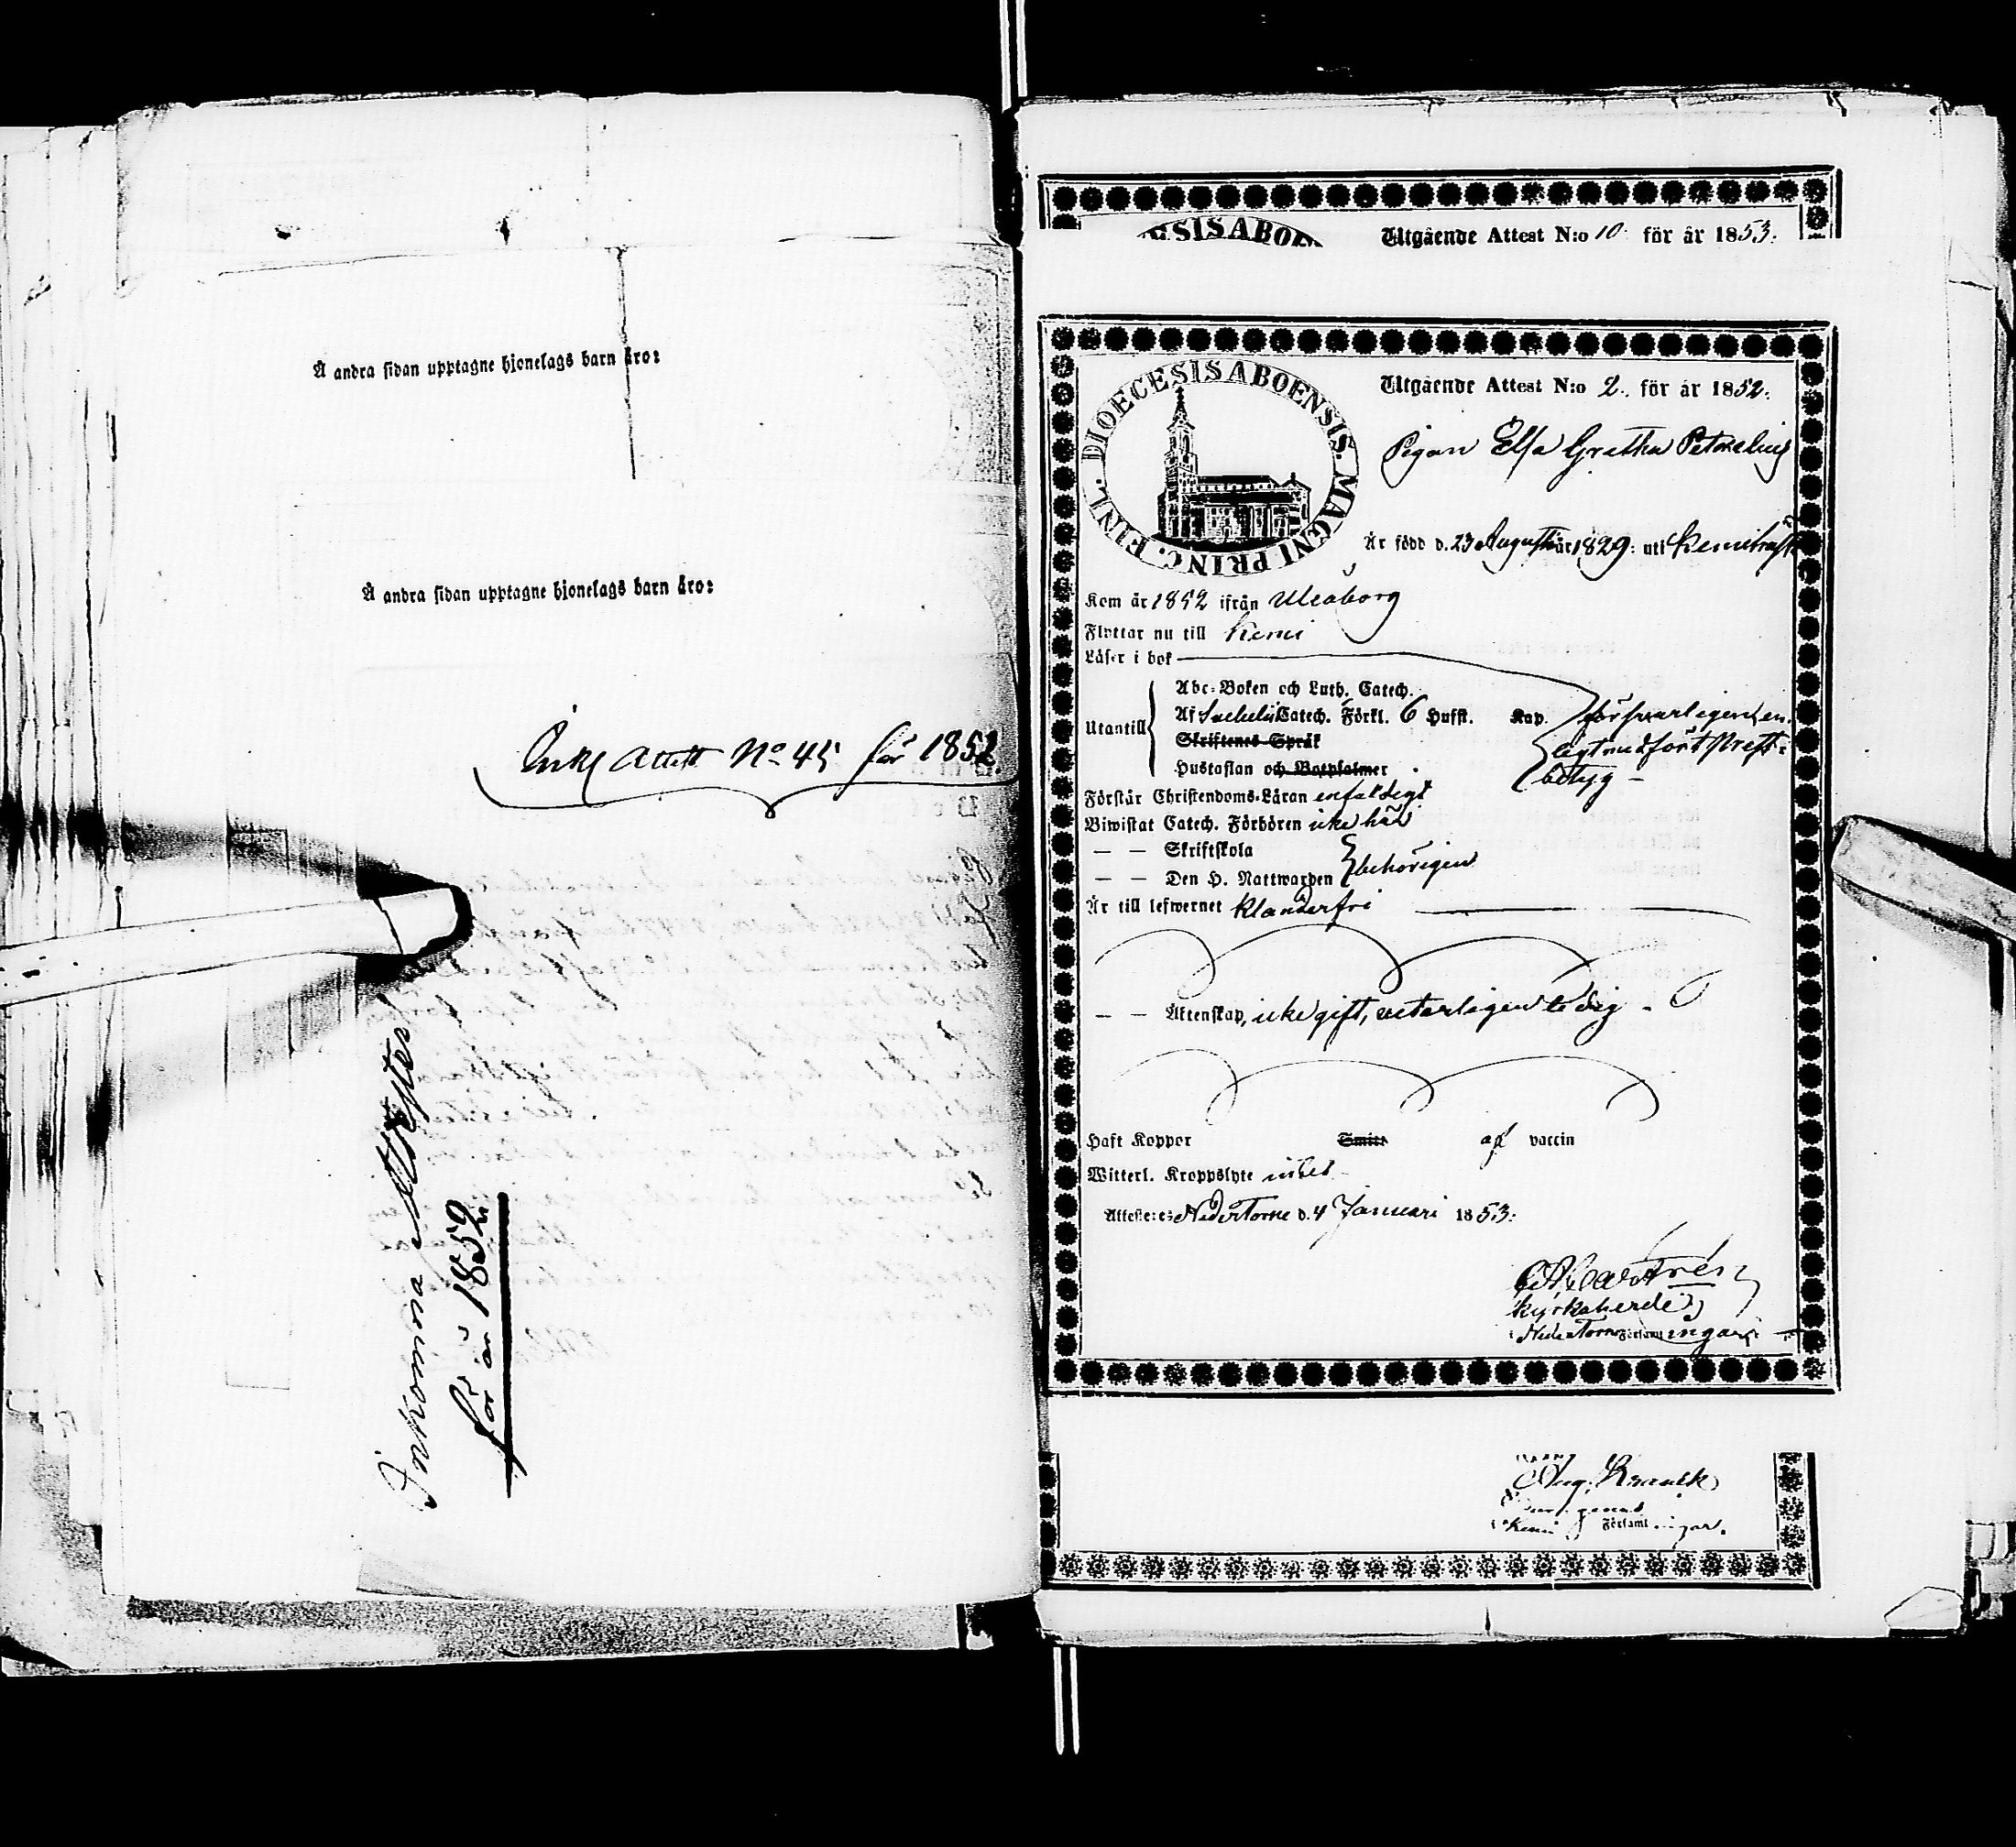 Å andra sidan upptagne hjonelags barn äro:
Å andra sidan upptagne hjonelags barn äro:
Ink. Attest No 45 för 1852.
Inkomna Attester
för år 1852
ESIS ABOEN
Utgående Attest N:o 10 för år 1853.
DIOECESIS ABOENSIS. MAGNI PRINC. FINL.
Utgående Attest N:o 2. för år 1852.
Pigan Elsa Gretha Petrelius
Är född d. 23 Augusti år 1829: uti Kemiträsk
Kom år 1852 ifrån Uleåborg
Flyttar nu till Kemi
Läser i bok
Abc-Boken och Luth. Catech.
Utantill Af Catech. Förkl. 6 Hufst. Kap. försvarligen, en-
Skriftenes Språk ligt medfört Prest-
Hustaflan och Botpsalmer betyg
Förstår Christendoms-Läran enfaldigt
Biwistat Catech. Förhören icke här
— — Skriftskola
— — Den H. Nattwarden behörigen
Är till lefwernet klanderfri
— — Äktenskap, icke gift, veterligen ledig
Haft Koppor Smitt af vaccin
Witterl. Kroppslyte intet
Attesterar Neder Torne d. 4 Januari 1853:
Castrén
Kyrkoherde i
Neder Torne Församlingar
Aug. Kranck
Kemi Församlingar.